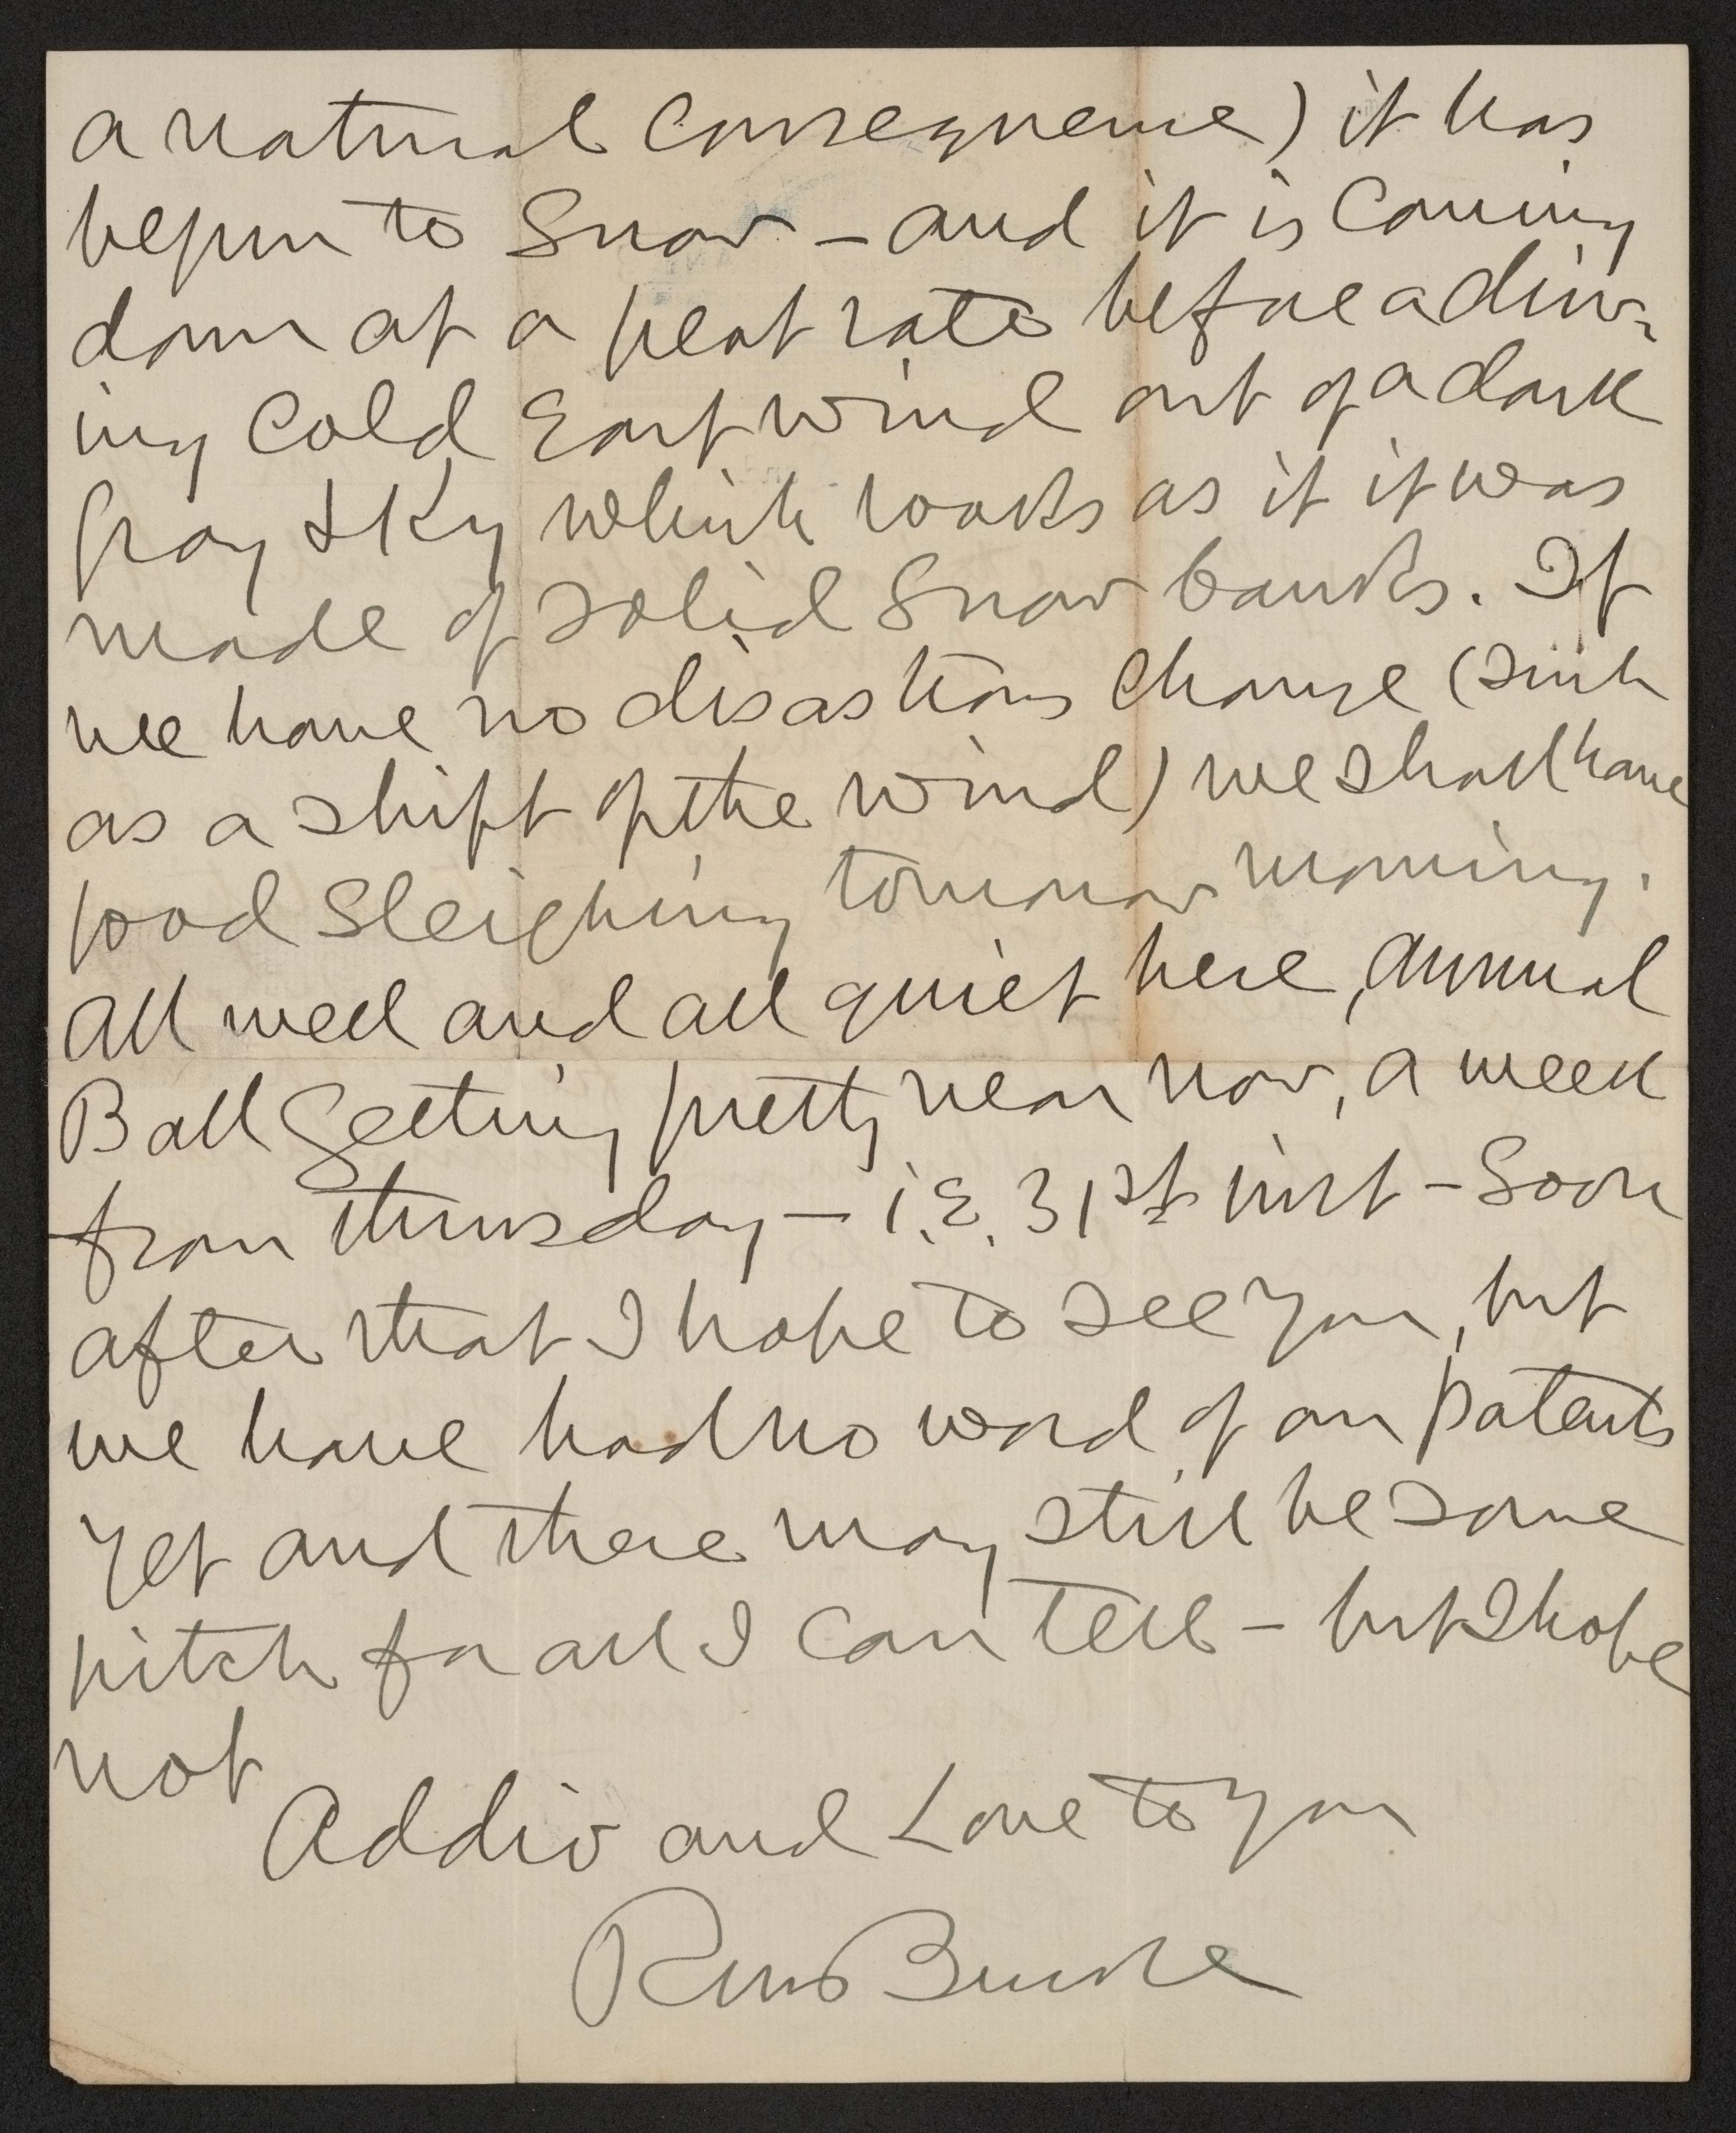 a natural Consequence) it has
begun to Snow – and it is Coming
down at a great rate before a driv-
ing Cold East wind out of a dark
gray sky which looks as if it was
made of solid Snow banks. If
we have no disastrous Change (such
as a shift of the wind) we shall have
good Sleighing tomorrow morning.
All well and all quiet here, Annual
Ball Getting pretty near now, a week
from thursday – i.e. 31st inst – Soon
after that I hope to see you, but
we have had no word of our patents
yet and there may still be some
hitch for all I can tell – but I hope
not
Addio and Love to you